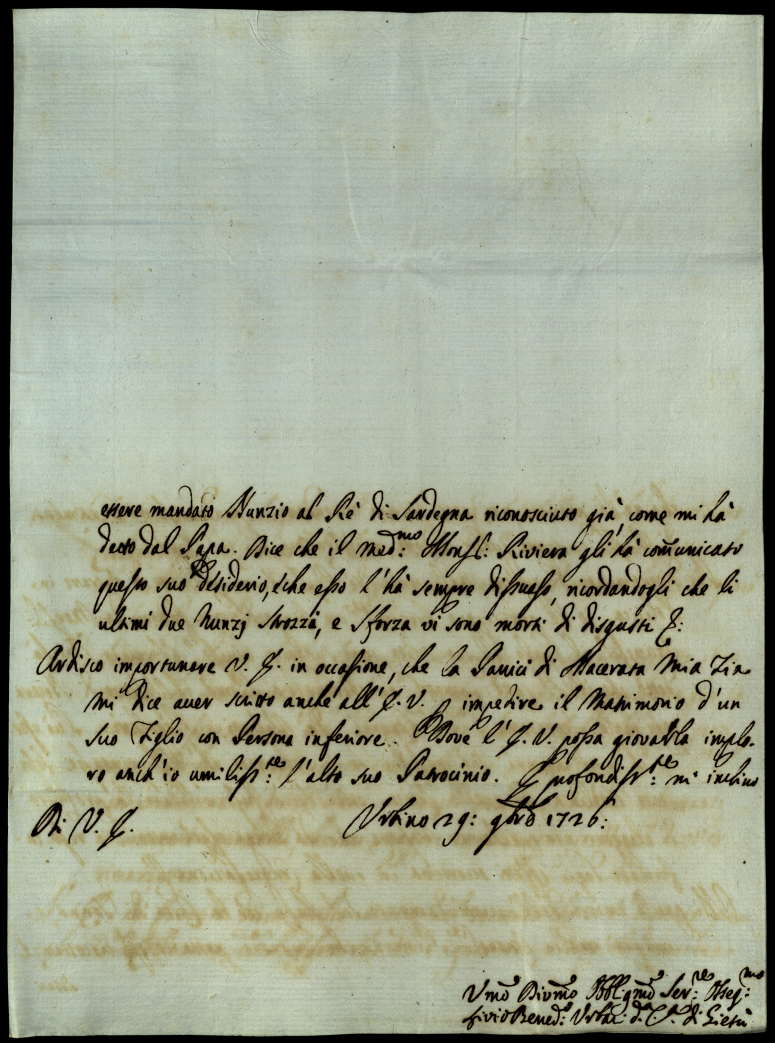 essere mandato Nunzio al Rè di Sardegna riconosciuto già, come mi hà
detto dal Papa. Dice che il med:mo Monsr: Riviera gli hà comunicato
questo suo desiderio, e che esso l'hà sempre dissuaso, ricordandogli che li
ultimi due Nunzj Strozzi, e Sforza vi sono morti di disgusti &:
Ardisco importunare V. E. in occasione, che la Panici di Macerata mia Zia
mi dice aver scritto anche all'E. V. impedire il Matrimonio d'un
suo Figlio con Persona inferiore. Dove l'E. V. possa giovarla implo-
ro anch'io umiliss:te l'alto suo Patrocinio. E profondiss:te m'inchino
Di V. E. Urbino 29: 9bre 1726:
Umo Divmo Obblgmo Ser:re Osseq:mo
Livio Bened:o di Giesù